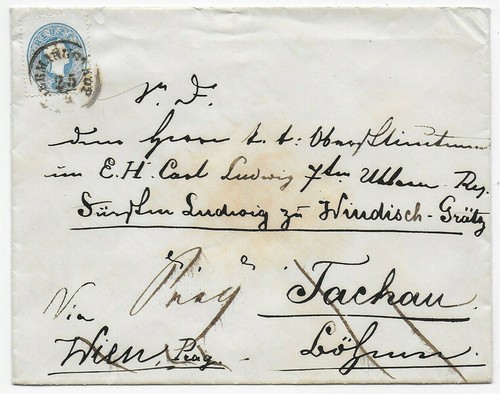 S. D.
dem Herrn k. k. Oberstlieutenant
im E. H. Carl Ludwig 7ten Uhlan. Reg.
Fürsten Ludwig zu Windisch-Grätz
"Prag"
Tachau
Via
Wien, Prag.
Böhmen